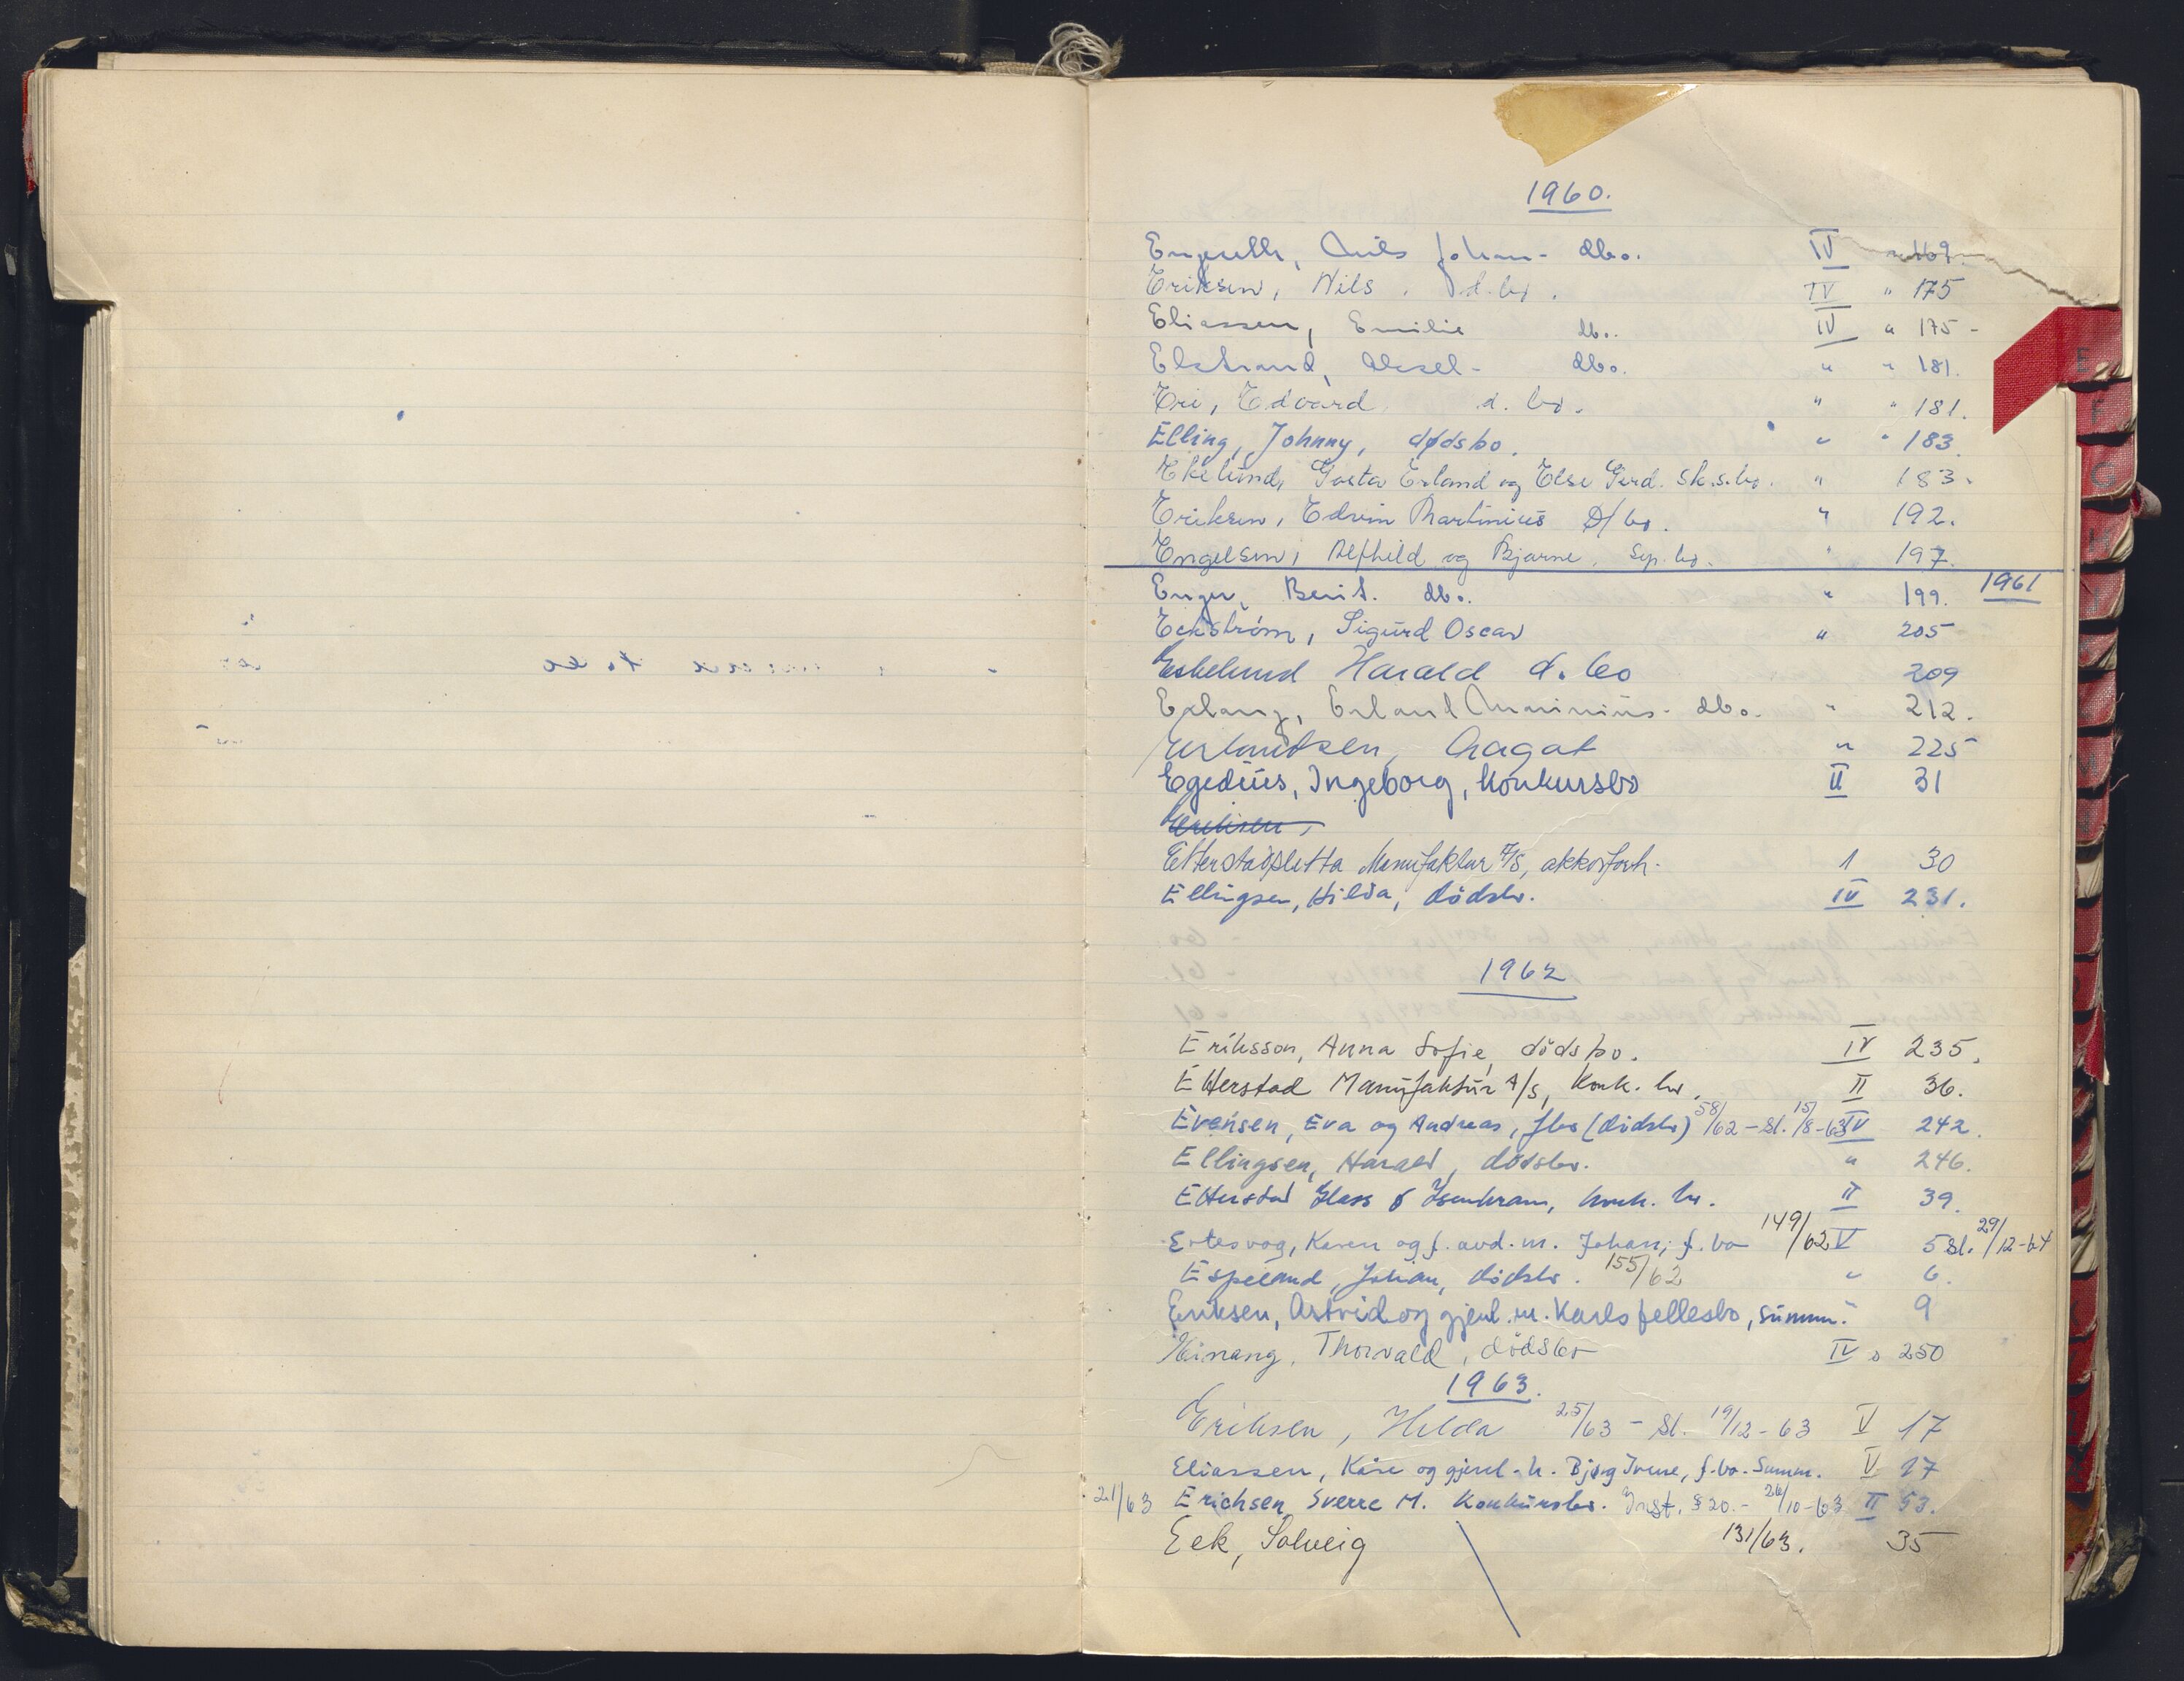 1960.
Johan - dbo. IV
Eriksen, Nils, d.bo. IV " 175
Eliassen, Emilie db.. IV " 175 -
Elstrand, Aksel - dbo. " " 181.
Eri, Edvard d. bo. " " 181.
Elling, Johnny, dødsbo. " " 183
Ekelund, Gösta Erland og Else Gerd. sk.s.bo. " 183.
Eriksen, Edvin Martinius D/bo. " 192.
Engelsen, Alfhild og Bjarne. Sep. bo. " 197.
Enger, Berit. dbo. " 199. 1961
Eckström, Sigurd Oscar " 205
Eskelund Harald d. bo 209
Erland dbo. " 212.
Erlandsen, Aagat " 225
Egedius, Ingeborg, Konkursbo II 31
Eriksen,
Etterstadsletta Manufaktur A/S, akkofosh. 1 30
Ellingsen, Hilda, dödsbo. IV 231.
1962
Eriksson, Anna Sofie, dödsbo. IV 235.
Etterstad Manufaktur A/S, Konk. bo. II 36.
Evensen, Eva og Andreas, fbo (dödsbo) 58/62 - Sl. 15/8-63 IV 242.
Ellingsen, Harald, dödsbo. " 246.
Etterstad Glass & Isenkram, konk. bo. II 39.
Ertesvog, Karen og f. avd. m. Johan, f. bo 149/62 V 5 Sl. 29/12-64
Espeland, Johan, dödsbo. 155/62 " 6.
Eriksen, Astrid og gjenl. m. Karls fellesbo, summ. " 9
Thorvald, dödsbo IV " 250
1963.
Eriksen, Hilda 25/63 - Sl. 19/12-63 V 17
Eliassen, Kåre og gjenl. h. Bjørg Irene, f.bo. Summ. V 17
21/63 Erichsen, Sverre M. Konkursbo. Inst. § 20. - 26/10-63 II 53.
Eek, Solveig 131/63. 35
E
F
G
H